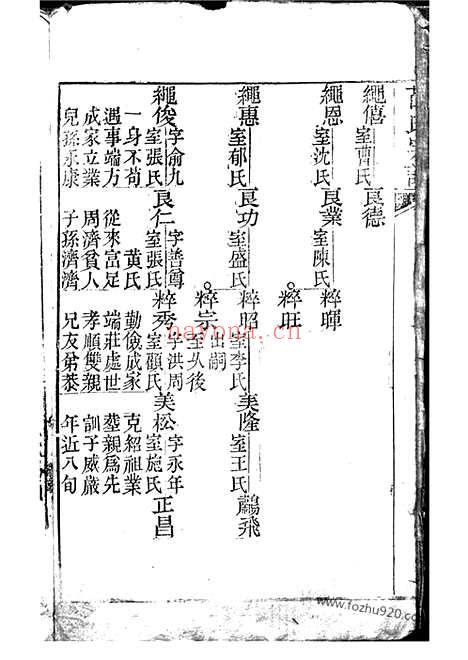 繩僖 室曹氏 良德
繩恩 室沈氏 良業 室陳氏 粹暉
粹旺
繩惠 室郁氏 良功 室盛氏 粹昭 室李氏 美隆 室王氏 鸝飛
粹宗 出嗣
繩俊 字俞九 室張氏 良仁 字善尊 室張氏 粹秀 字洪周 室顧氏 美松 字永年 室施氏 正昌
一身不苟 黄氏 勤儉成家 克紹祖業
遇事端方 從來富足 端莊處世
成家立業 周濟貧人 孝順雙親 訓子威嚴
兒孫永康 子孫濟濟 兄友弟恭 年近八旬
nayona.cn
www.fozhu920.com